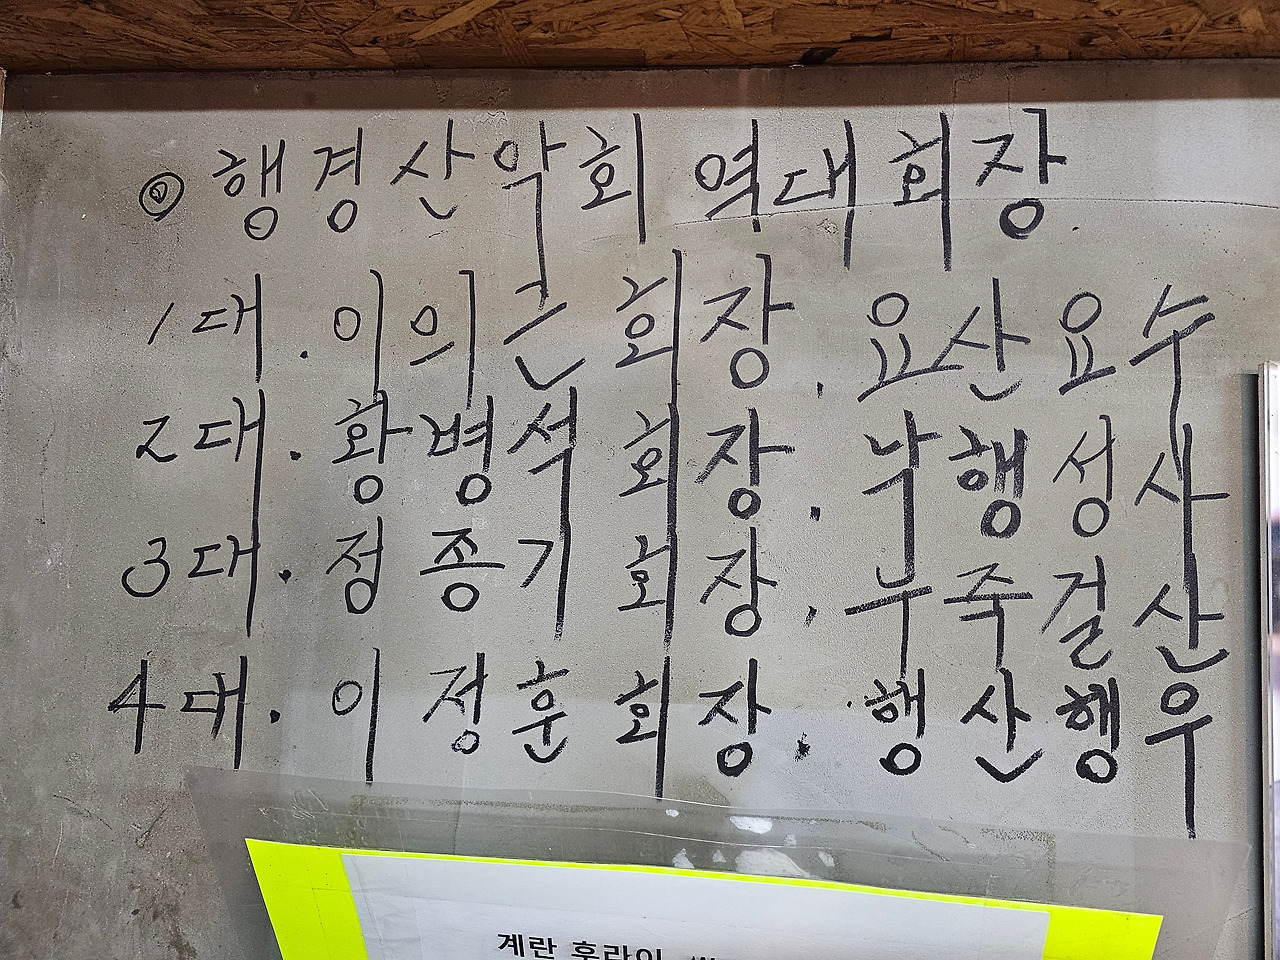 ◎ 행경산악회 역대회장
1대. 이의근 회장. 요산요수
2대. 황병석 회장. 낙행성사
3대. 정종기 회장. 부죽걸산
4대. 이정훈 회장. 행산행우
계란 후라이